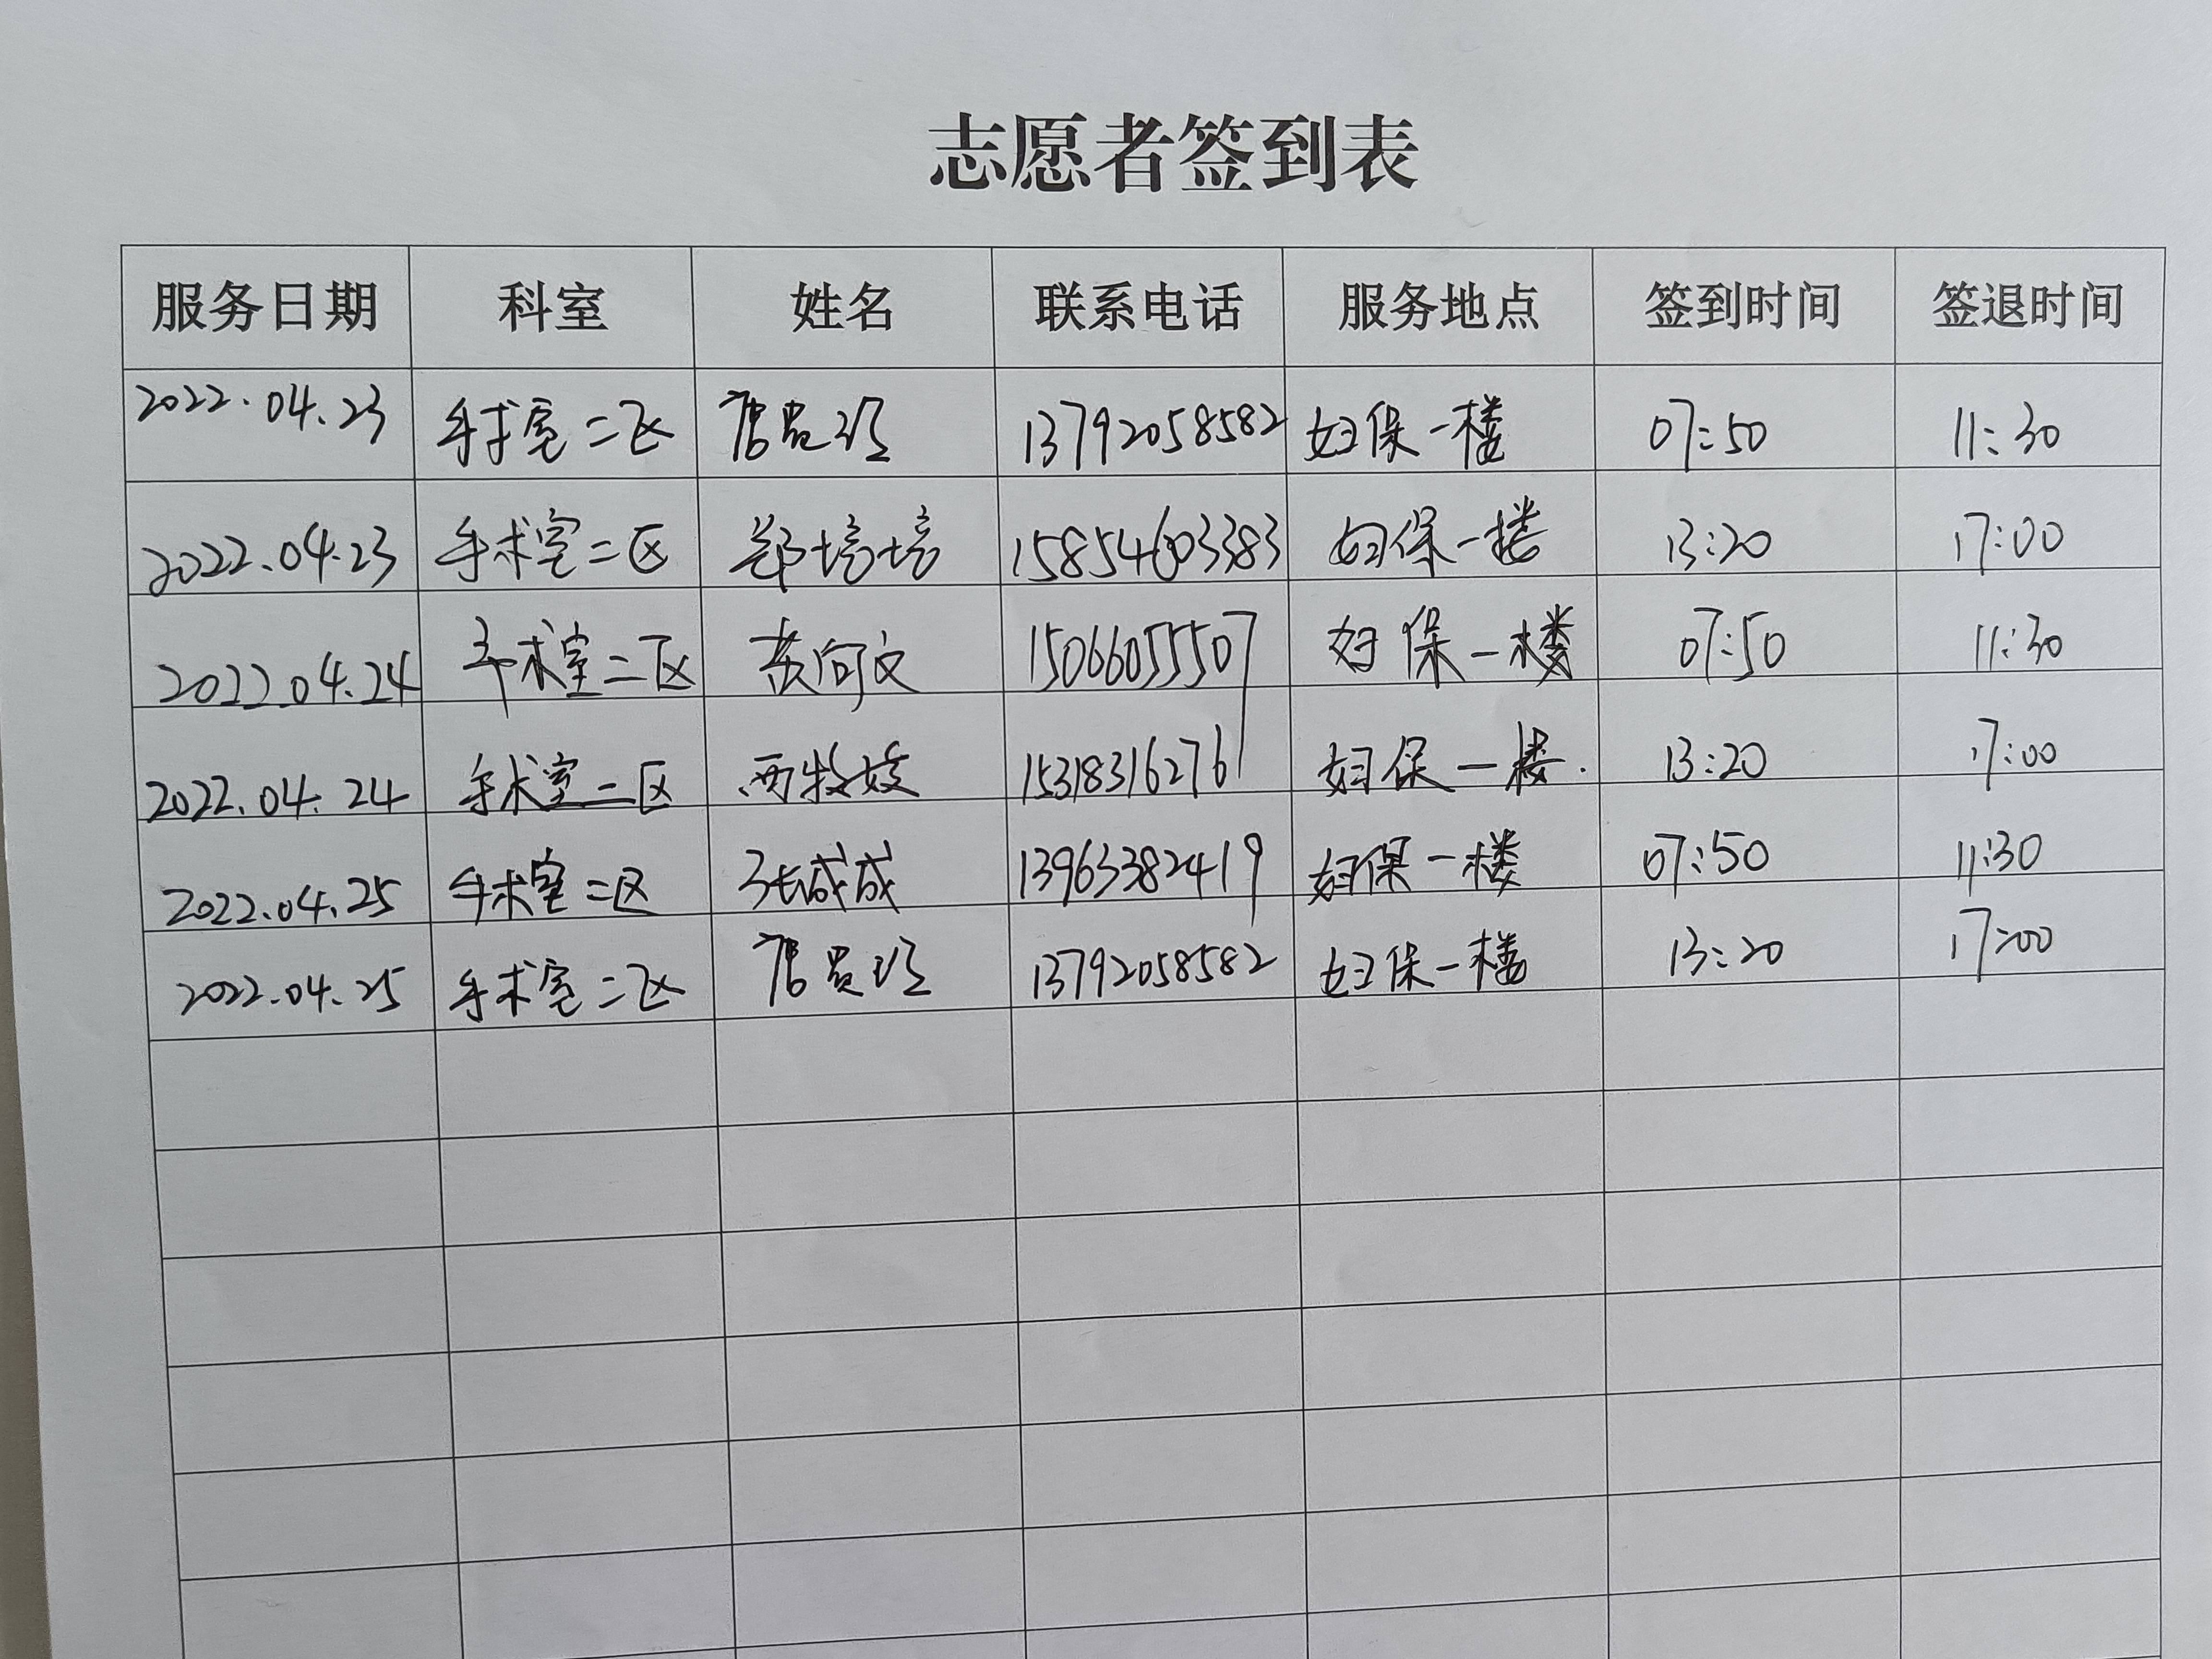 志愿者签到表
服务日期 科室 姓名 联系电话 服务地点 签到时间 签退时间
2022.04.23 手术室二区 13792058582 妇保一楼 07:50 11:30
2022.04.23 手术室二区 郑培培 15854603383 妇保一楼 13:20 17:00
2022.04.24 手术室二区 黄向文 15066055507 妇保一楼 07:50 11:30
2022.04.24 手术室二区 15318316276 妇保一楼. 13:20 17:00
2022.04.25 手术室二区 张成成 13963382419 妇保一楼 07:50 11:30
2022.04.25 手术室二区 13792058582 妇保一楼 13:20 17:00